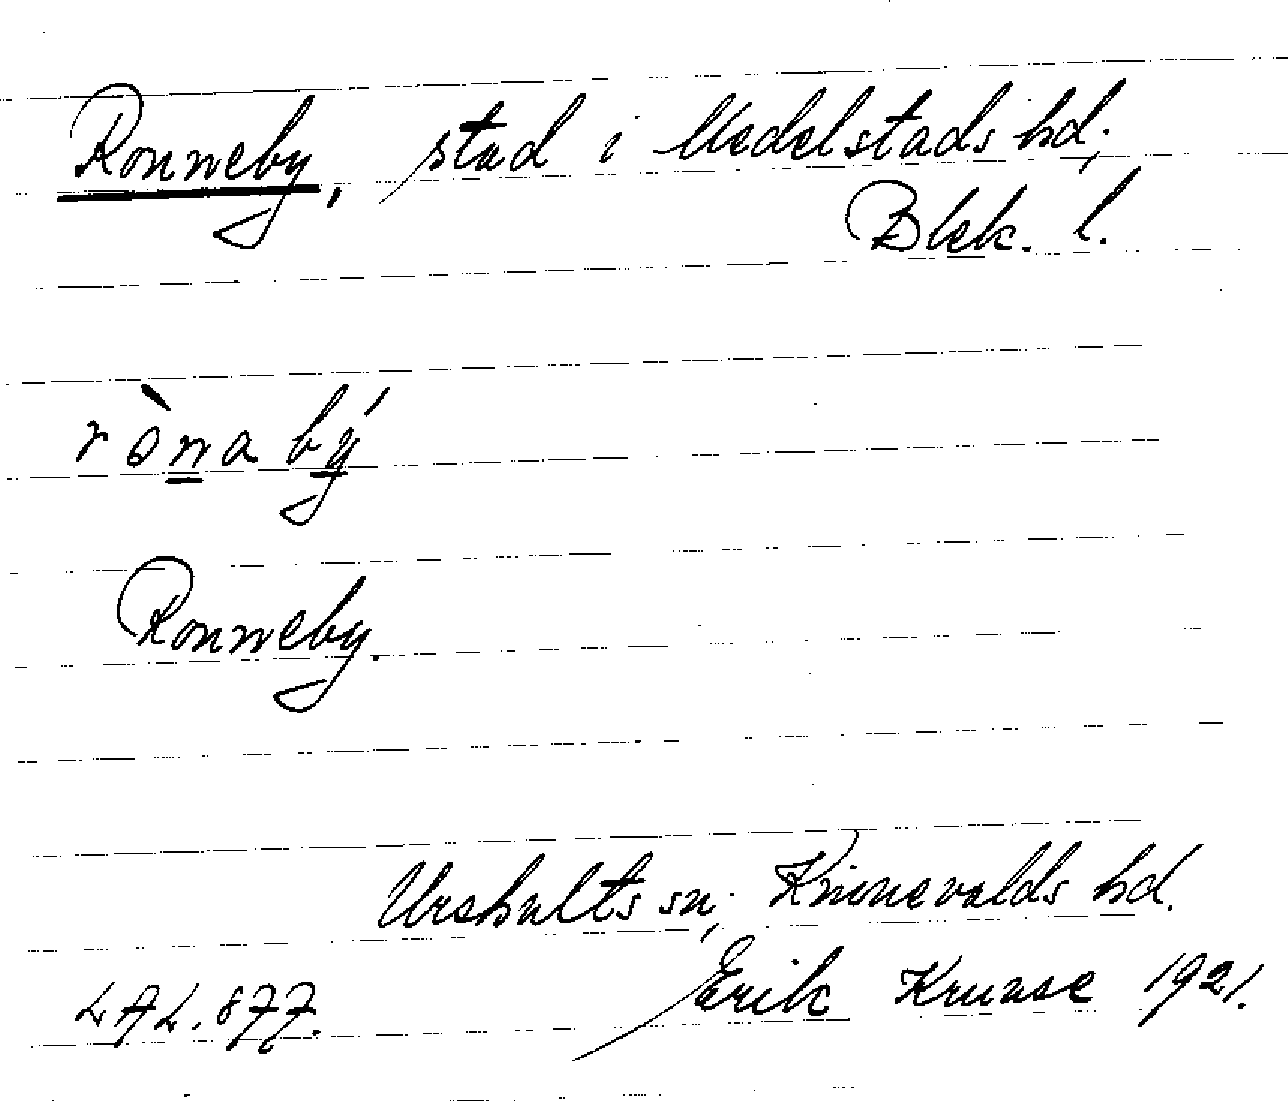 Ronneby, stad i Medelstads hd;
Blek. l.
rònabý
Ronneby.
Urshults sn; Kinnevalds hd.
LAL. 877. Erik Kruuse 1921.